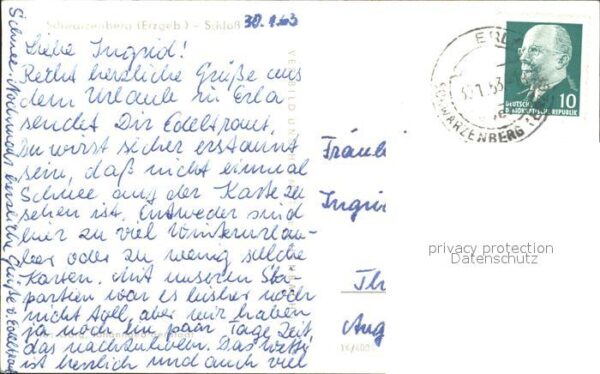 Schwarzenberg (Erzgeb.) - Schloß
30.1.63
Liebe Ingrid!
Recht herzliche Grüße aus
dem Urlaub in Erla
sendet Dir Edeltraut.
Du wirst sicher erstaunt
sein, daß nicht einmal
Schnee auf der Karte zu
sehen ist. Entweder sind
hier zu viel Winterurlau-
ber oder zu wenig solche
Karten. Mit unseren Ski-
partien war es bisher noch
nicht doll, aber wir haben
ja noch ein paar Tage Zeit
das nachzuholen. Das Wetter
ist herrlich und auch viel
Schnee. Nochmals herzliche Grüße v. Edeltraut
Fräul
Ingri
Th
Aug
ERLA
30.1.63
SCHWARZENBERG
DEUTSCHE
DEMOKRATISCHE REPUBLIK
10
privacy protection
Datenschutz